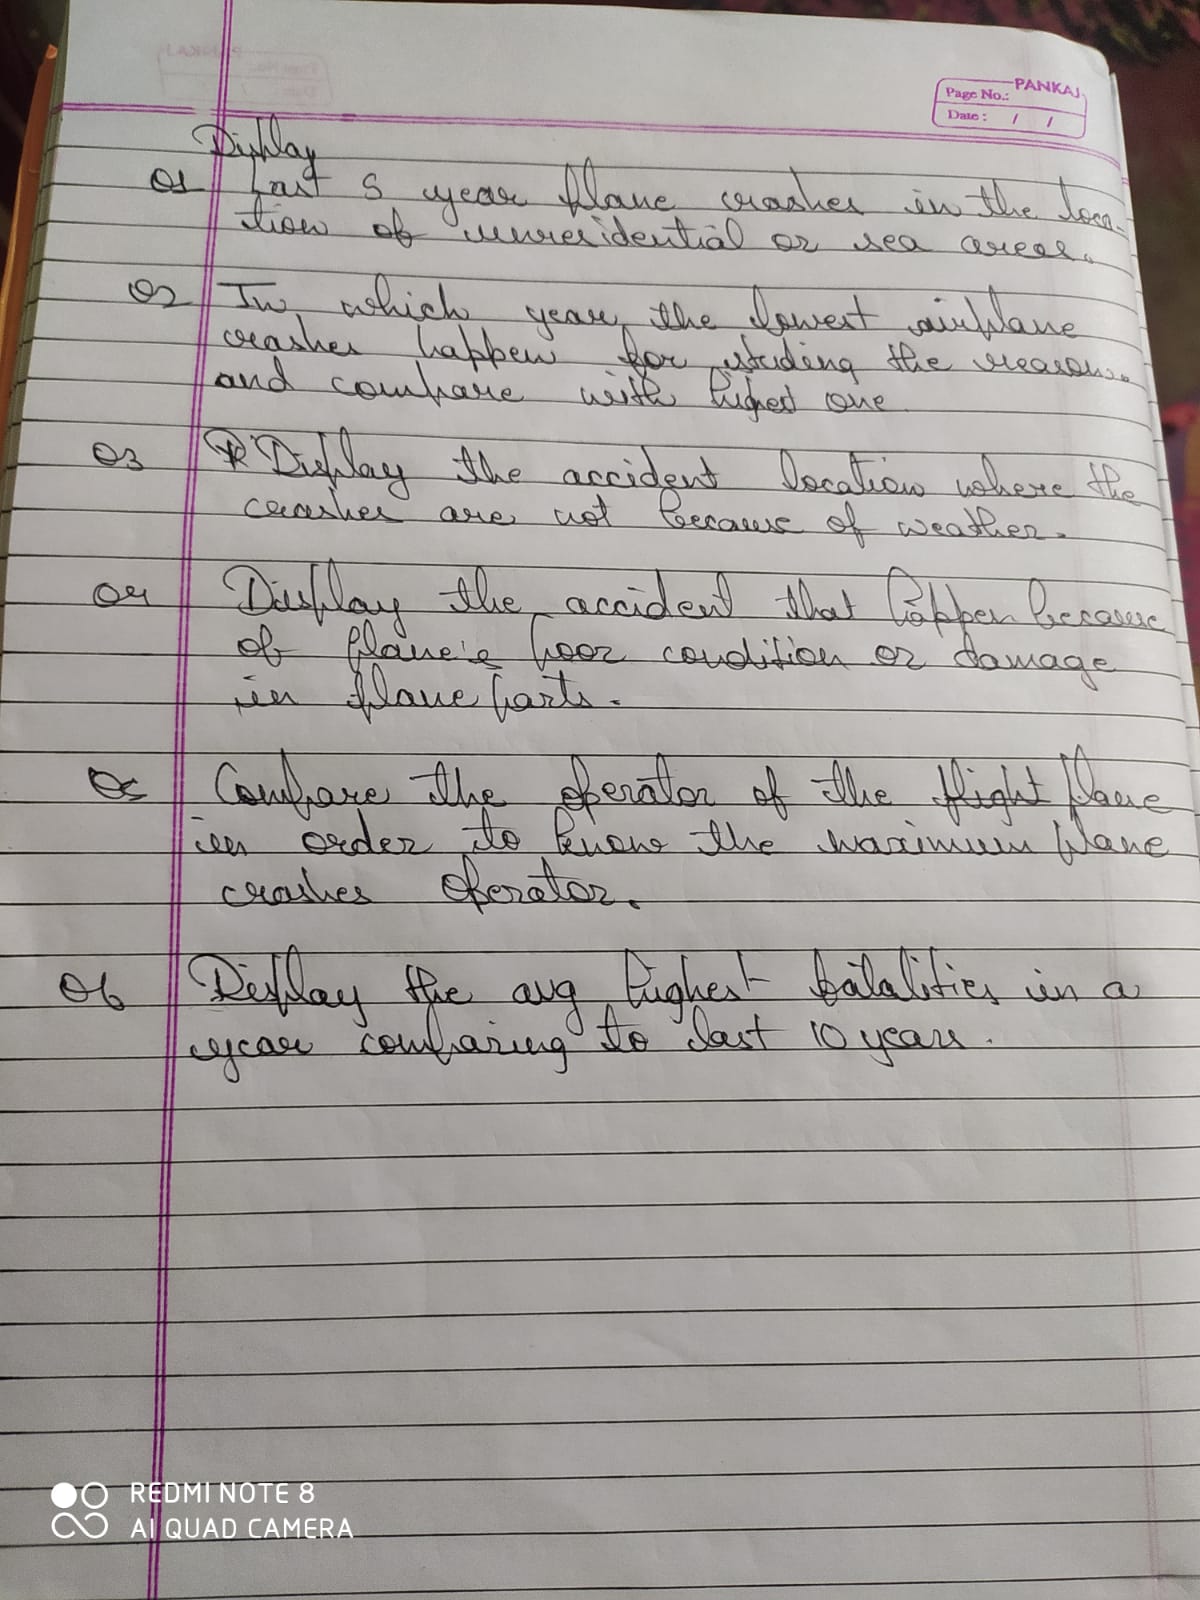 PANKAJ
Page No.:
Date: / /
Display
Q1 Last 5 year plane crashes in the loca-
tion of unresidential or sea areas.
Q2 In which year, the lowest airplane
crashes happen for studing the reasons.
and compare with highest one
Q3 Display the accident location where the
crashes are not because of weather.
Q4 Display the accident that happen because
of plane's poor condition or damage
in plane parts.
Q5 Compare the operator of the flight plane
in order to know the maximum plane
crashes operator.
Q6 Display the avg highest fatalities in a
year comparing to last 10 years.
REDMI NOTE 8
AI QUAD CAMERA